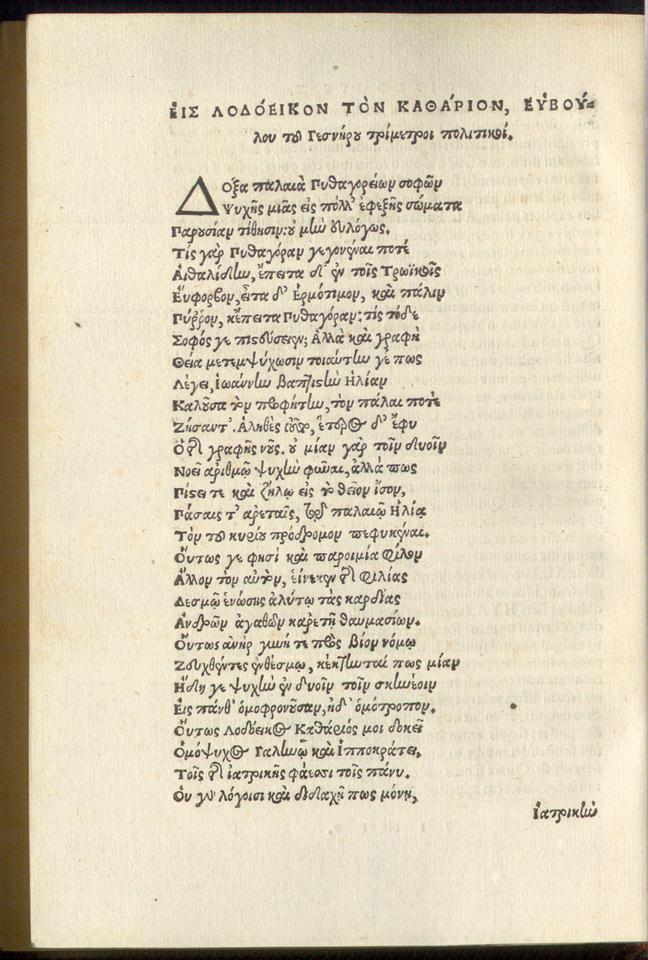 ΕἸΣ ΛΟΔΌΕΙΚΟΝ ΤῸΝ ΚΑΘΆΡΙΟΝ, ΕΥ̓ΒΟΎ-
λου τοῦ Γεσνήρου τρίμετροι πολιτικοί.
Δόξα παλαιὰ Πυθαγορείων σοφῶν
Ψυχῆς μιᾶς εἰς πόλλ' ἐφεξῆς σώματα
Παρυσίαν τίθησιν: οὐ μὴν εὐλόγως.
Τίς γὰρ Πυθαγόραν γεγονέναι ποτὲ
Αἰθαλίδην, ἔπειτα δ' ἐν τοῖς Τρωϊκοῖς
Εὔφορβον, εἶτα δ' Ἑρμότιμον, καὶ πάλιν
Πύῤῥον, κἄπειτα Πυθαγόραν: τίς τόδε
Σοφός γε πιστεύσειεν; Ἀλλὰ καὶ γραφὴ
Θεία μετεμψύχωσιν τοιαύτην γέ πως
Λέγει, Ἰωάννην Βαπτιστὴν Ἠλίαν
Καλοῦσα τὸν προφήτην, τὸν πάλαι ποτὲ
Ζήσαντ'. Ἀληθὲς οὖν, ἕτερος δ' ἔφυ
Ὁ τῆς γραφῆς νοῦς. οὐ μίαν γὰρ τοῖν δυοῖν
Νοεῖ ἀριθμῷ ψυχὴν φῦναι, ἀλλά πως
Πίστει τε καὶ ζήλῳ εἰς τὸ θεῖον ἴσον,
Πάσαις τ' ἀρεταῖς, τῷ παλαιῷ Ἠλίᾳ
Τὸν τοῦ κυρίου πρόδρομον πεφυκέναι.
Οὕτως γε φησὶ καὶ παροιμία φίλον
Ἄλλον τὸν αὐτὸν, εἵνεκεν τῆς φιλίας
Δεσμῷ ἑνώσης ἀλύτῳ τὰς καρδίας
Ἀνδρῶν ἀγαθῶν κἀρετῇ θαυμασίων.
Οὕτως ἀνὴρ γυνή τε πρὸς βίον νόμῳ
Ζευχθέντες ἐνθέσμῳ, κέκτηνταί πως μίαν
Ἤδη γε ψυχὴν ἐν δυοῖν τοῖν σκηνέοιν
Εἰς πάνθ' ὁμοφρονοῦσαν, ἠδ' ὁμότροπον.
Οὕτως Λοδόεικος Καθάριός μοι δοκεῖ
Ὁμόψυχος Γαληνῷ καὶ Ἱπποκράτει,
Τοῖς τῆς ἰατρικῆς φάεσσι τοῖς πάνυ.
Οὐ γὰρ λόγοισι καὶ διδαχῇ πως μόνῃ,
Ἰατρικὴν